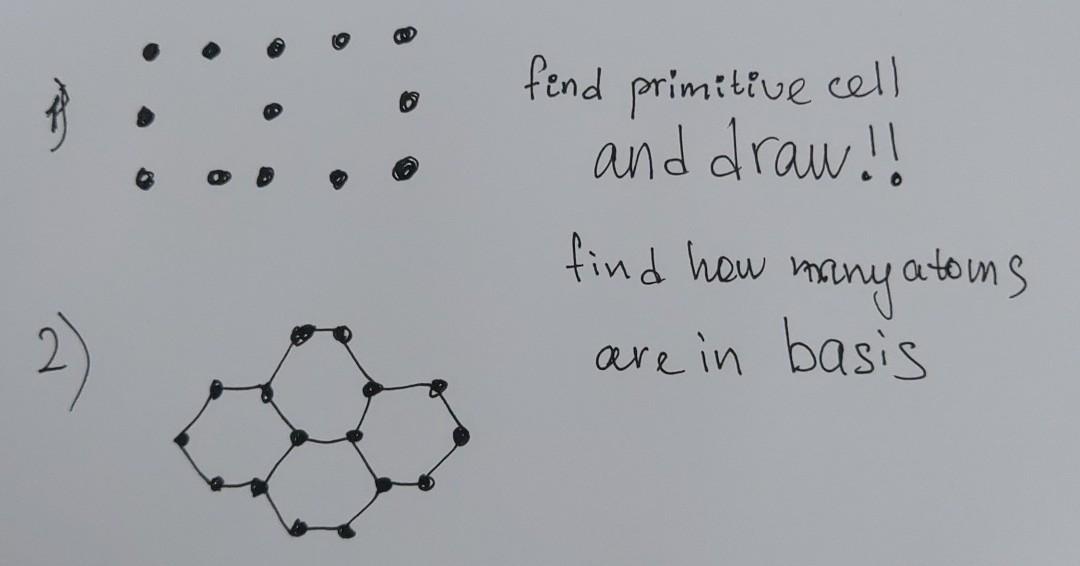 1)
find primitive cell
and draw!!
find how many atoms
are in basis
2)